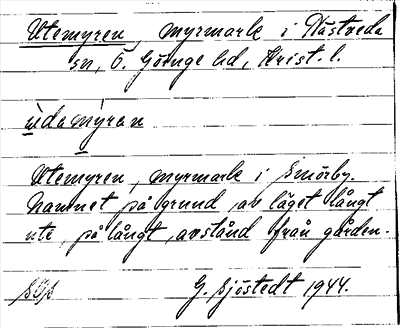 Utemyren, myrmark i Nästveda
sn, Ö. Göinge hd, Krist. l.
ùdamýran
Utemyren, myrmark i Smörby.
Namnet på grund av läget långt
ute, på långt avstånd från gården.
G. Sjöstedt 1944.